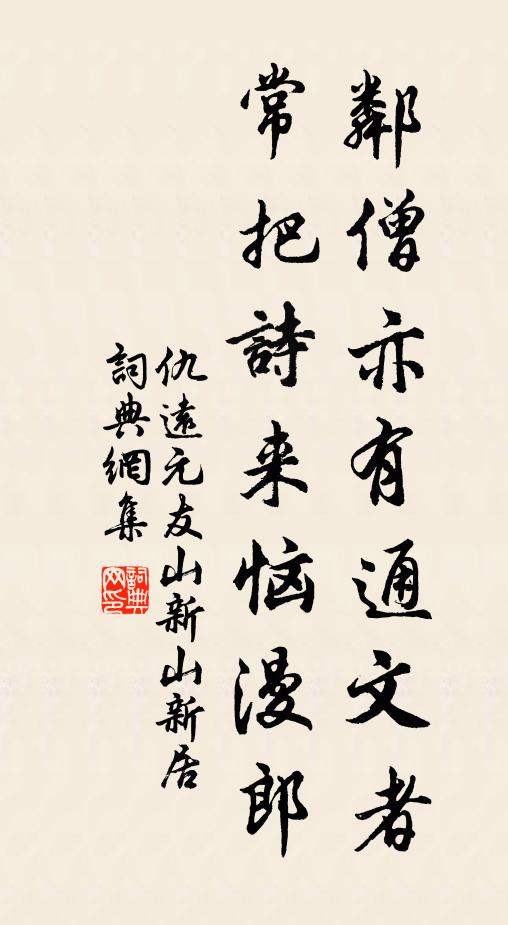 鄰僧亦有通文者
常把詩来恼漫郎
仇遠元友山新山新居
詞典網集
詞典网印